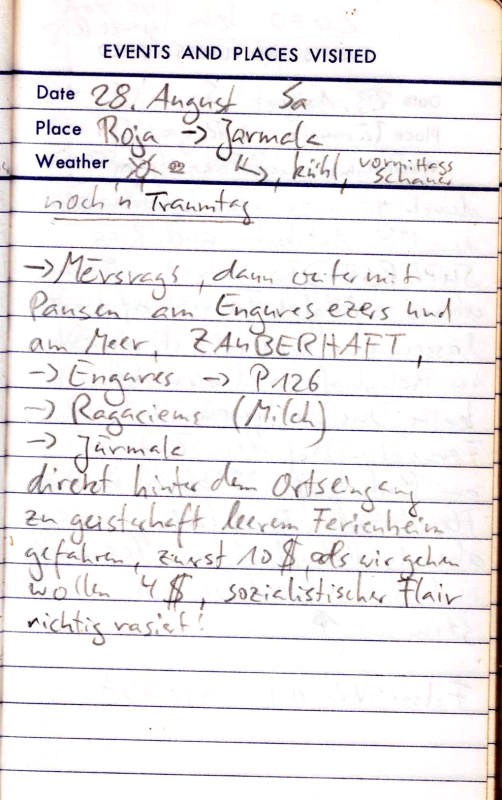 EVENTS AND PLACES VISITED
Date 28. August Sa
Place Roja → Jarmala
Weather kühl, vormittags Schauer
noch 'n Traumtag
→ Mērsrags, dann weiter mit
Pausen am Engures ezers und
am Meer, ZAUBERHAFT,
→ Engures → P126
→ Ragaciems (Milch)
→ Jūrmala
direkt hinter dem Ortseingang
zu geisterhaft leerem Ferienheim
gefahren, zuerst 10 $, als wir gehen
wollen 4 $, sozialistischer Flair
richtig